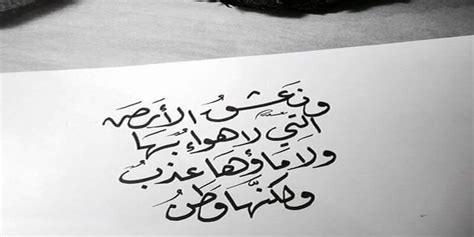 ونعشقُ الأرضَ
التي لا هواءٌ بها
ولا ماؤها عذبٌ
ولكنّها وطنُ